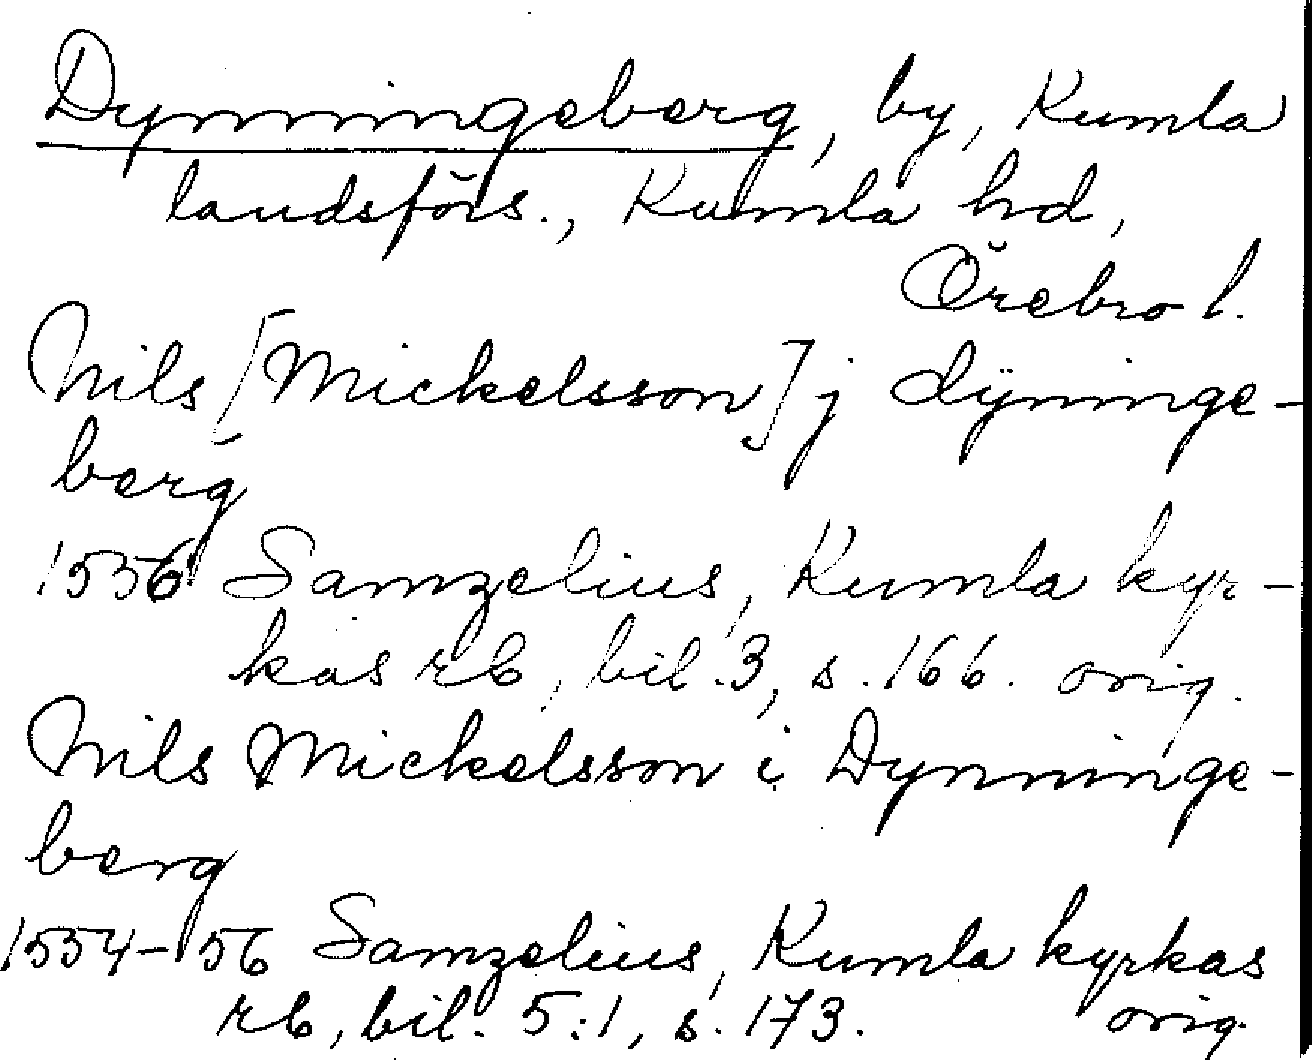 Dynningeberg, by, Kumla
landsförs., Kumla hd,
Örebro l.
Nils [Mickelsson] j dÿninge-
berg
1556 Samzelius, Kumla kyr-
kas rb, bil. 3, s. 166. orig.
Nils Mickelsson i Dynninge-
berg
1554-56 Samzelius, Kumla kyrkas
rb, bil. 5:1, s. 173. orig.